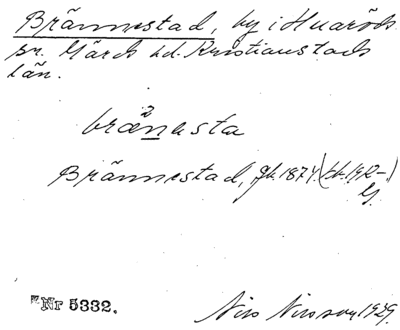 Brännestad, by i Huaröds
sn. Gärds hd. Kristianstads
län.
bränesta
2
Brännestad, Jb. 1874. (Jb. 1912-
Nr 5332.
Nils Nilsson 1929.